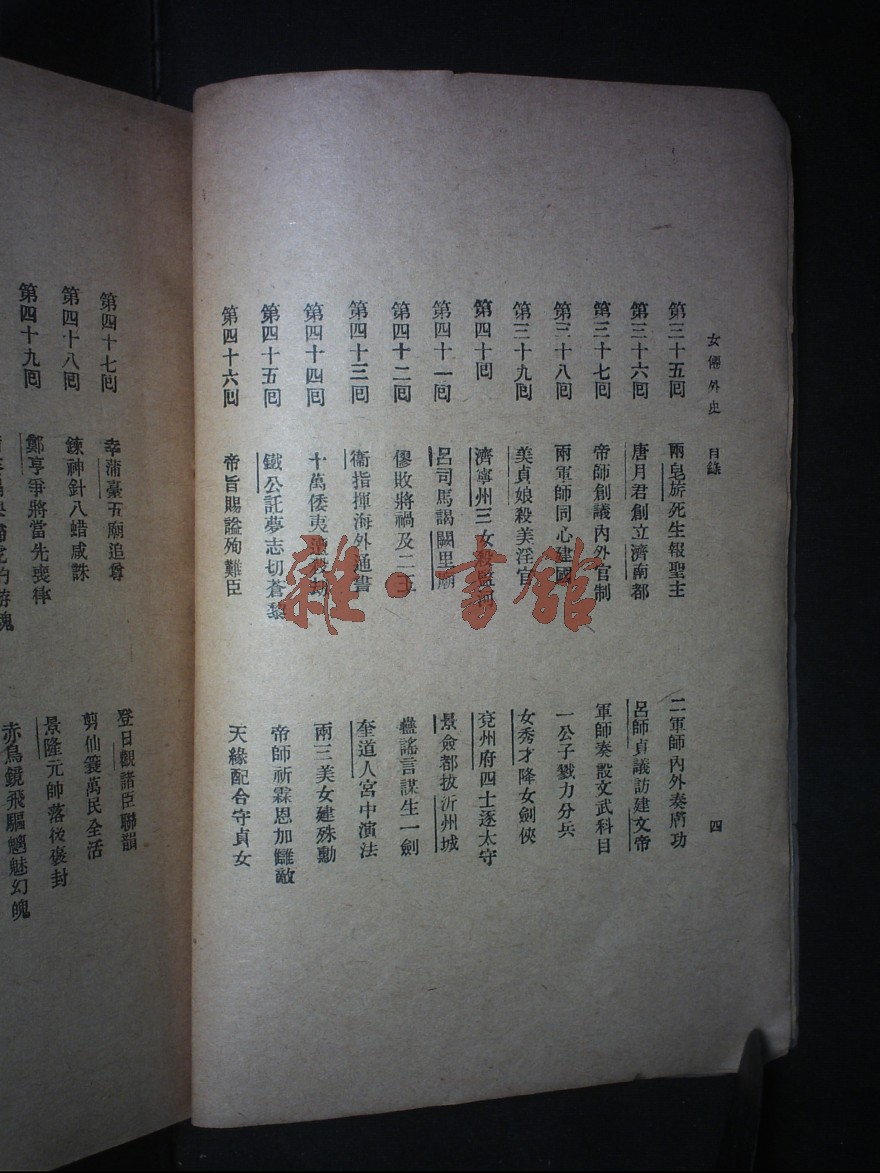 女僊外史 目錄 四
第三十五回 兩皂旂死生報聖主 二軍師內外奏膚功
第三十六回 唐月君創立濟南都 呂師貞議訪建文帝
第三十七回 帝師創議內外官制 軍師奏設文武科目
第三十八回 兩軍師同心建國 一公子戮力分兵
第三十九回 美貞娘殺美淫官 女秀才降女劍俠
第四十回 濟寧州三女殺監河 兗州府四士逐太守
第四十一回 呂司馬謁闕里廟 景僉都拔沂州城
第四十二回 僇敗將禍及二王 蠱謠言謀生一劍
第四十三回 衞指揮海外通書 奎道人宮中演法
第四十四回 十萬倭夷遭殺劫 兩三美女建殊勳
第四十五回 鐵公託夢志切蒼黎 帝師祈霖恩加讎敵
第四十六回 帝旨賜謚殉難臣 天緣配合守貞女
第四十七回 幸蒲臺五廟追尊 登日觀諸臣聯韻
第四十八回 鍊神針八蜡咸誅 剪仙簑萬民全活
第四十九回 鄭亨爭將當先喪律 景隆元帥落後褒封
游魂 赤鳥鏡飛驅魑魅幻魄
雜·書館